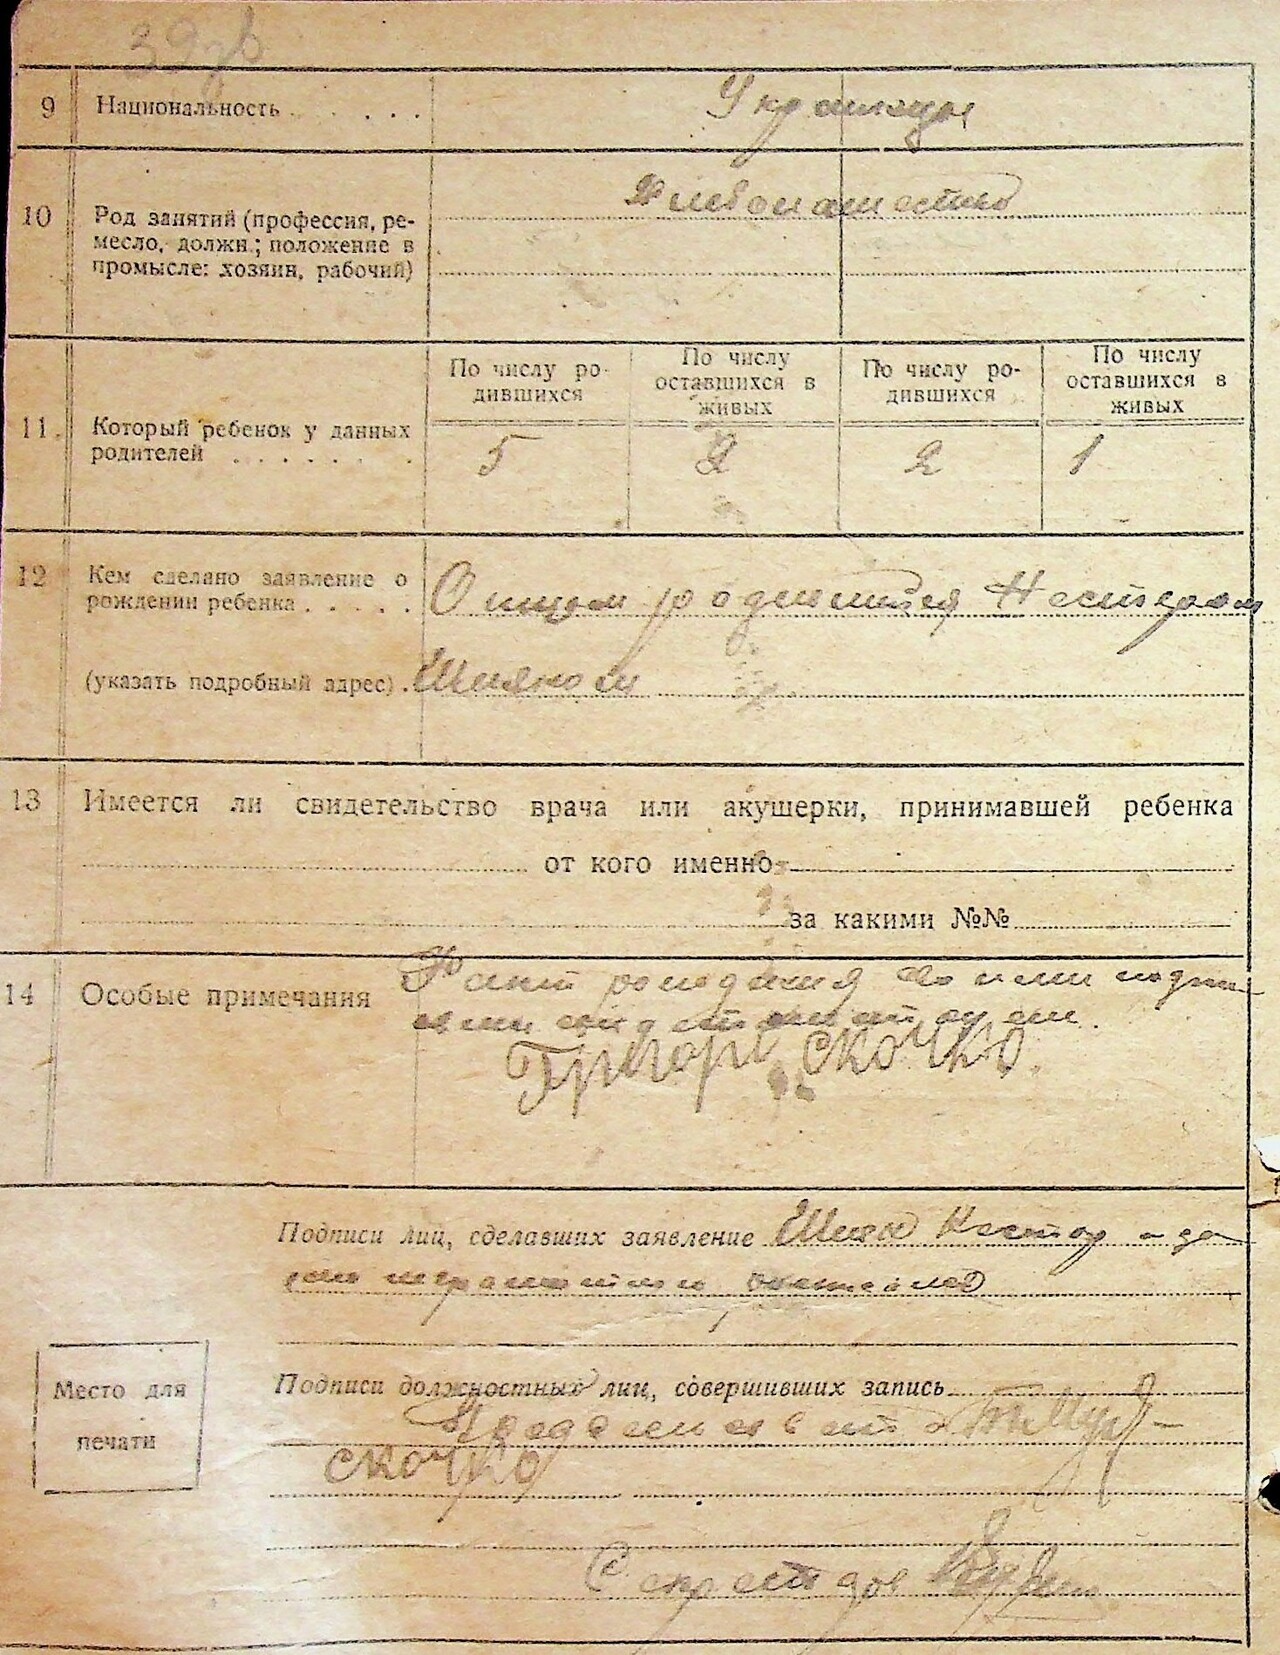 39
9 Национальность . . . . .
Украинцы
10 Род занятий (профессия, ре-
месло, должн.; положение в
промысле: хозяин, рабочий)
Хлебопашество
11. Который ребенок у данных
родителей . . . . . . .
По числу ро-
дившихся
По числу
оставшихся в
живых
По числу ро-
дившихся
По числу
оставшихся в
живых
5 2 2 1
12 Кем сделано заявление о
рождении ребенка . . . . .
Отцом родившийся Нестером
(указать подробный адрес) . Шияном
13 Имеется ли свидетельство врача или акушерки, принимавшей ребенка
от кого именно
за какими №№
14 Особые примечания
Факт рождения
Григорі скочко
Подписи лиц, сделавших заявление Шиян Нестор а за
Место для
печати
Подписи должностных лиц, совершивших запись
скочко
Секретарь